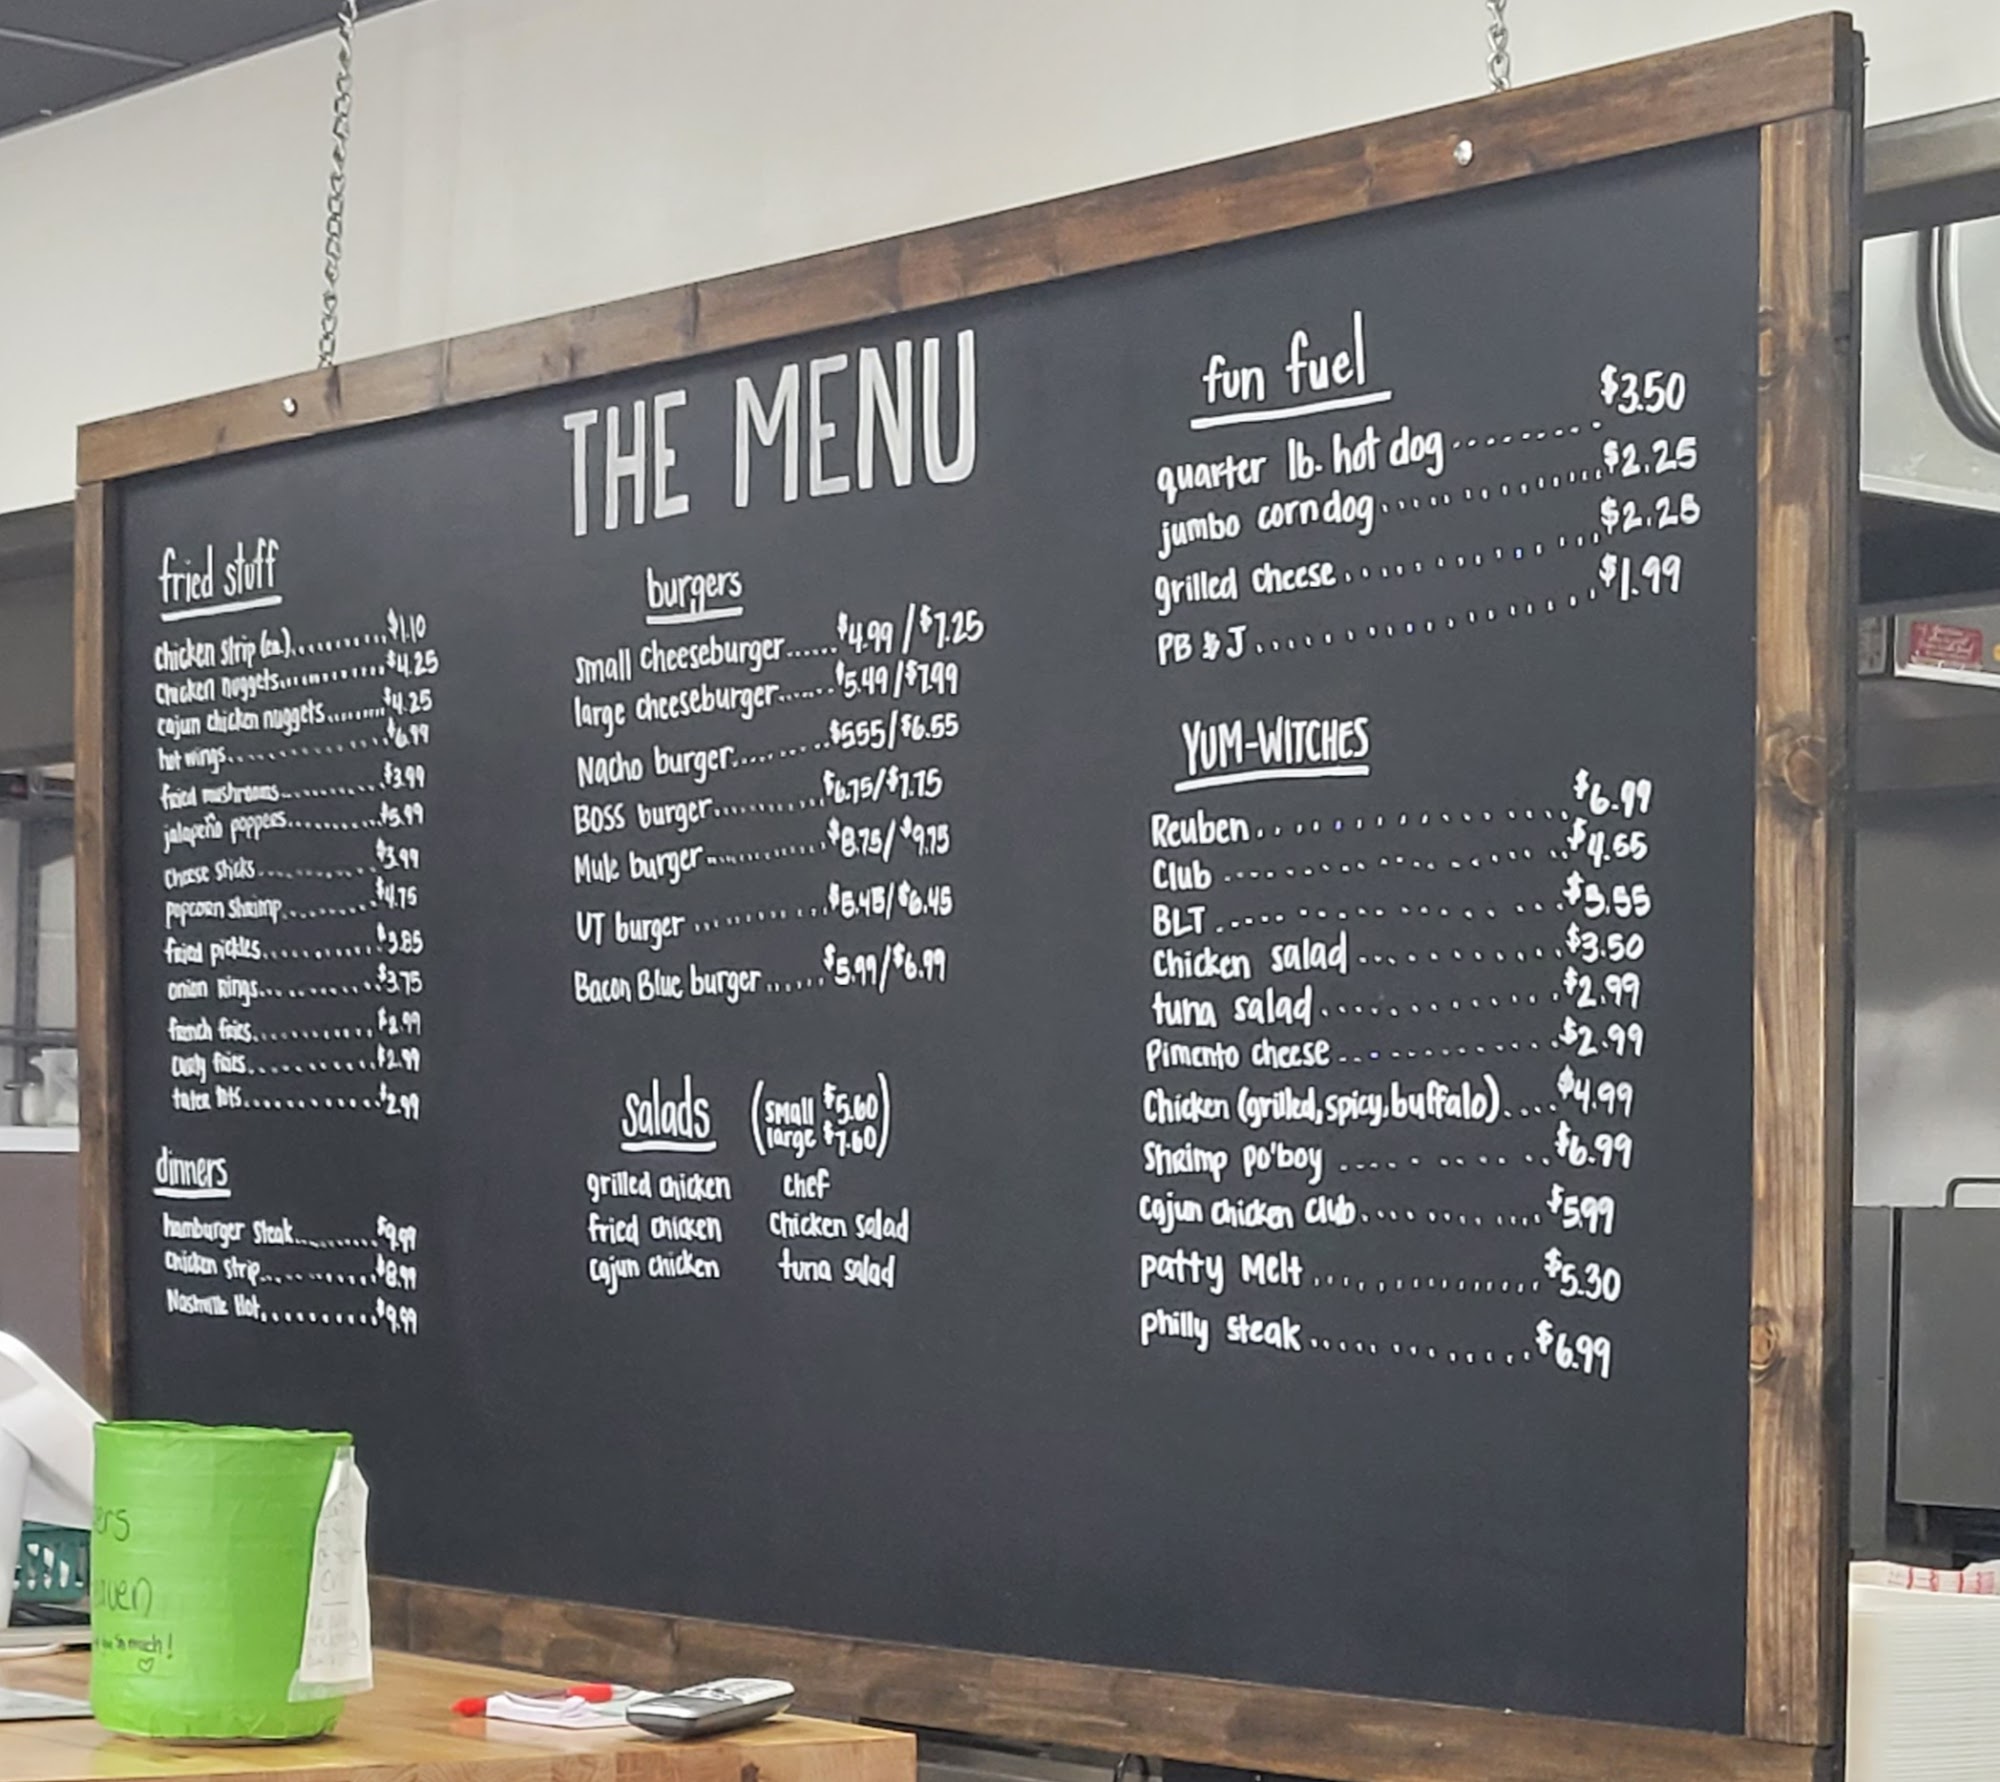 THE MENU
fried stuff
chicken strip (ea.)............$1.10
chicken nuggets.............$4.25
cajun chicken nuggets.........$4.25
hot wings..................$6.99
fried mushrooms.............$3.99
jalapeño poppers............$5.99
cheese sticks..............$3.99
popcorn shrimp...........$4.75
fried pickles..............$3.85
onion rings..............$3.75
french fries.............$2.99
curly fries..............$2.99
tater tots..............$2.99
dinners
hamburger steak...........$9.99
chicken strip.............$8.99
Nashville Hot............$9.99
burgers
small cheeseburger......$4.99/$7.25
large cheeseburger......$5.49/$7.99
Nacho burger..........$555/$6.55
BOSS burger............$6.75/$7.75
Mule burger............$8.75/$9.75
UT burger............$5.45/$6.45
Bacon Blue burger......$5.99/$6.99
salads (small $5.60
large $7.60)
grilled chicken chef
fried chicken chicken salad
cajun chicken tuna salad
fun fuel
quarter lb. hot dog.........$3.50
jumbo corndog..............$2.25
grilled cheese..............$2.25
PB & J..................$1.99
YUM-WITCHES
Reuben..................$6.99
Club....................$4.55
BLT....................$5.55
Chicken salad............$3.50
tuna salad..............$2.99
Pimento cheese............$2.99
Chicken (grilled, spicy, buffalo)....$4.99
Shrimp po'boy............$6.99
cajun chicken club..........$5.99
patty melt................$5.30
philly steak..............$6.99
so much!